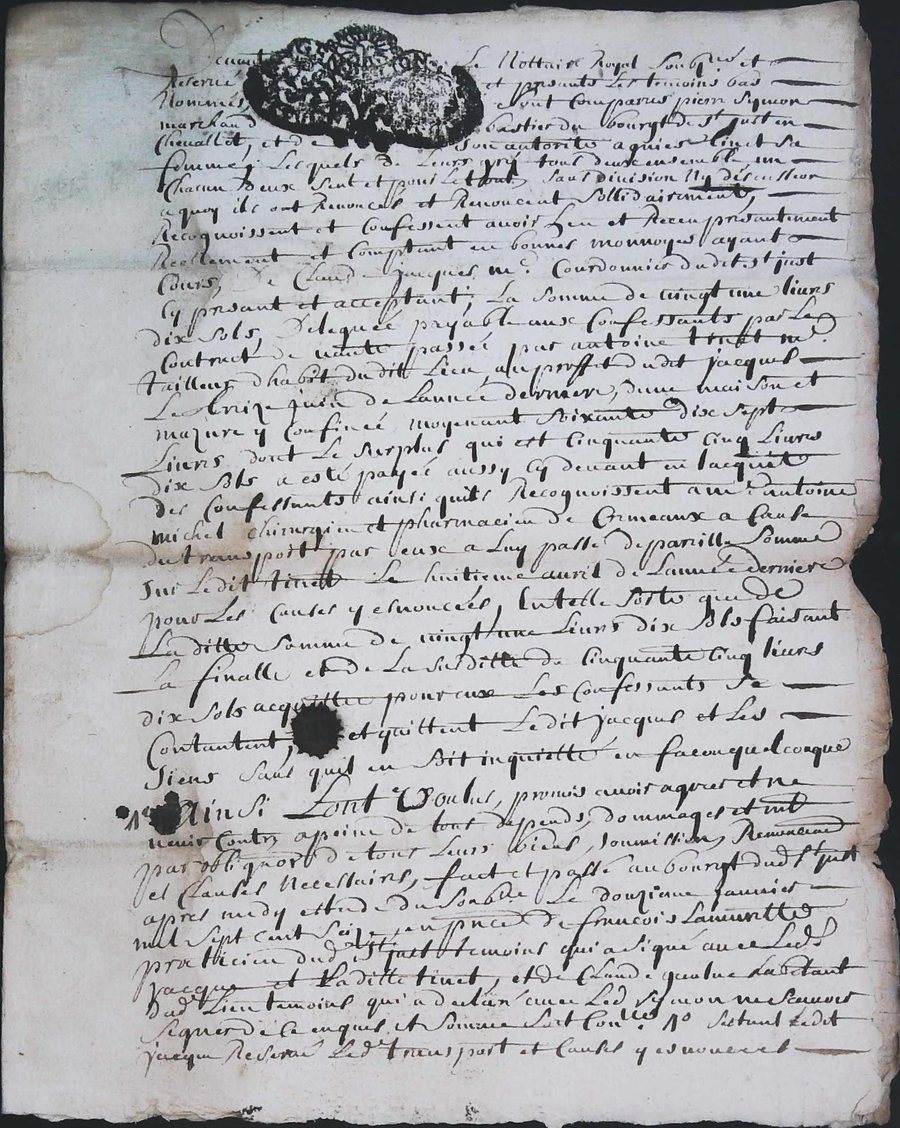 Devant Le Nottaire Royal Soubsigné et
Reservé et presents Les temoins bas
Nommés Sont Comparus pierre Symon
marchand bastier du bourg de St just en
Chevallet, et de Son autorité agnies tinet Sa
femme; Lesquels de Leurs gré tous deux ensemble, un
Chacun deux Seul et pour Le tout, Sans division Ny discussion
a quoy ils ont Renoncés et Renoncent Sollidairement,
Recoqnoissent et Confessent avoir heu et Receu presantement
Reellement et Comptant en bonnes monnoyes ayant
Cours, De Claude Jacques, md. Courdonnier dudit St just
Cy presant et acceptant; La Somme de vingt une livres
dix Sols, Deleguée payable aux Confessants par Le
Contract de vante passée par antoine tinet md.
Tailleur dhabit dudit Lieu, au proffit dudit jacques
Le treize juin de Lannée derniere, dune maison et
mazure y Confinée, moyenant Soixante dix Sept
Livres dont Le Surplus qui est Cinquante Cinq Livres
dix Sols a esté payée aussy Cy devant en lacquit
des Confessants ainsi quils Recognoissent a mr. antoine
michel Chirurgien et pharmacien de Cremeaux a Cause
du transport par eux a Luy passé de pareille Somme
Sur Ledit tinet Le huitieme avril de Lannée derniere
pour Les Causes y esnoncées, En telle Sorte que de
La ditte Somme de vingt une Livres dix Sols faisant
La finalle et de La Susditte de Cinquante Cinq livres
dix Sols acquittée pour eux Les Confessants Se
Contantent, et quittent Ledit jacques et Les
Siens Sans quil en Soit inquietté en facon quelconque
Ainsi Lont Voulus, promis avoir agrée et ne
venir Contre a peine de tous depends, dommages et
par obligaon de tous Leurs biens, Soumission, Renonciaon
et Clauses Necessaires, fait et passé au bourg dud St just
apres medy estude du Soubne Le douzieme janvier
mil Sept Cent Seize, en pnce de francois
practicien dud St just temoins qui a Signé avec Led.
jacques et Laditte tinet, et de Claude habitant
dud. Lieu temoins qui a declaré avec Led Symon ne Scavoir
Signer de Ce enquis et Sommé Soit Conlle No Sestant Ledit
jacque Reservé Led. transport et Causes y esnoncées